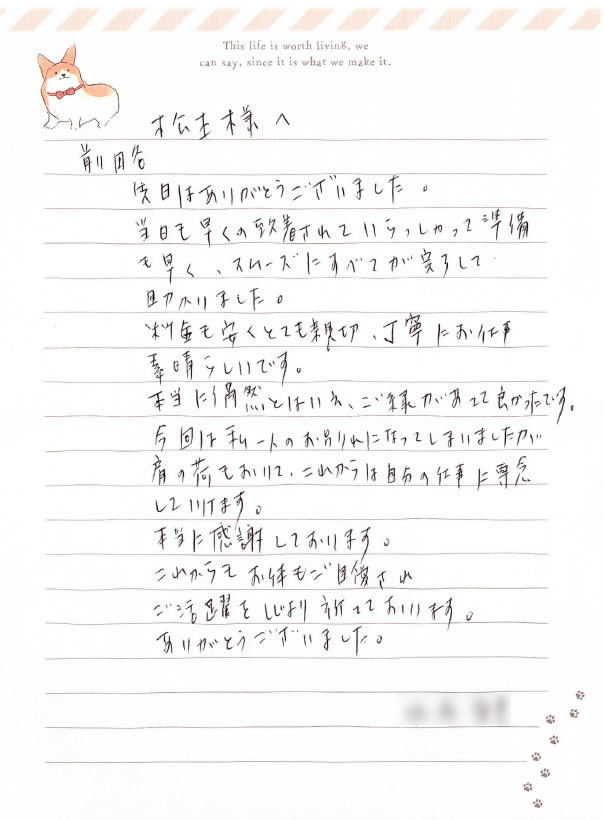 This life is worth living, we
can say, since it is what we make it.
松圭様へ
前田各
先日はありがとうございました。
当日も早くの致着されていらっしゃって準備
も早く、スムーズにすべてが完了して
助かりました。
料金も安くとても親切、丁寧にお仕事
素晴らしいです。
本当に偶然とはいえ、ご縁があって良かったです。
今回は私一人のお別れになってしまいましたが
肩の荷もおいて、これからは自分の仕事に専念
して行けます。
本当に感謝しております。
これからもお体もご自愛され
ご活躍を心より祈っております。
ありがとうございました。